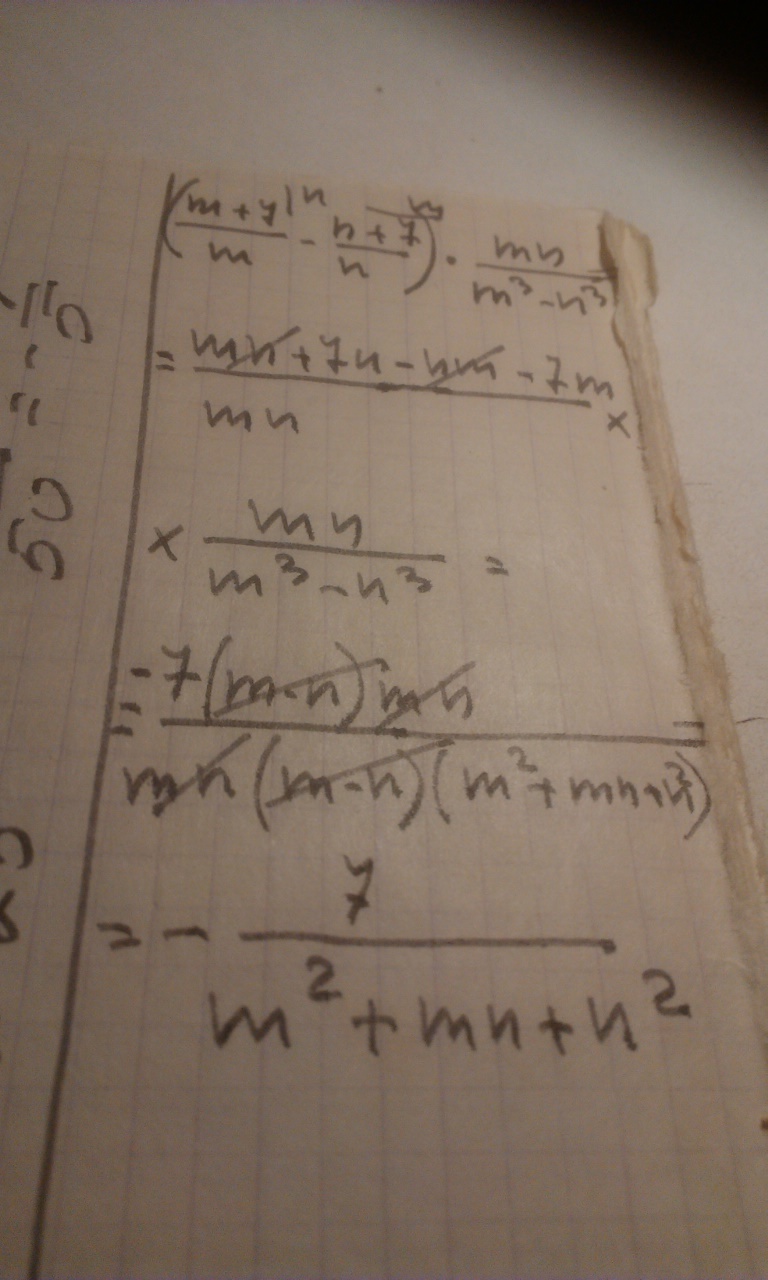 (m+7/m |n - n+7/n |m) · mn/m³-n³
= mn+7n-nm-7m/mn ×
× mn/m³-n³ =
= -7(m-n)mn/mn(m-n)(m²+mn+n²) =
= - 7/m²+mn+n²